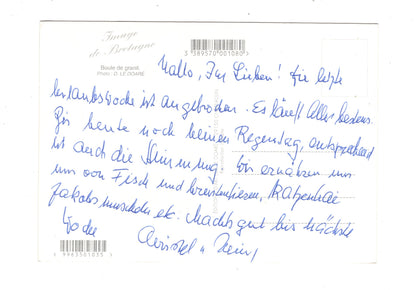 Image
de Bretagne
3 389570 001080
Boule de granit
Photo : D. LE DOARÉ
Hallo, Ihr Lieben! Die letzte
Urlaubswoche ist angebrochen. Es läuft alles bestens.
Bis heute noch keinen Regentag, entsprechend
ist auch die Stimmung. Wir ernähren uns
von Fisch und Krustentieren, Katzenhai
Jakobsmuscheln etc. Machts gut bis nächste
Woche
9963501035